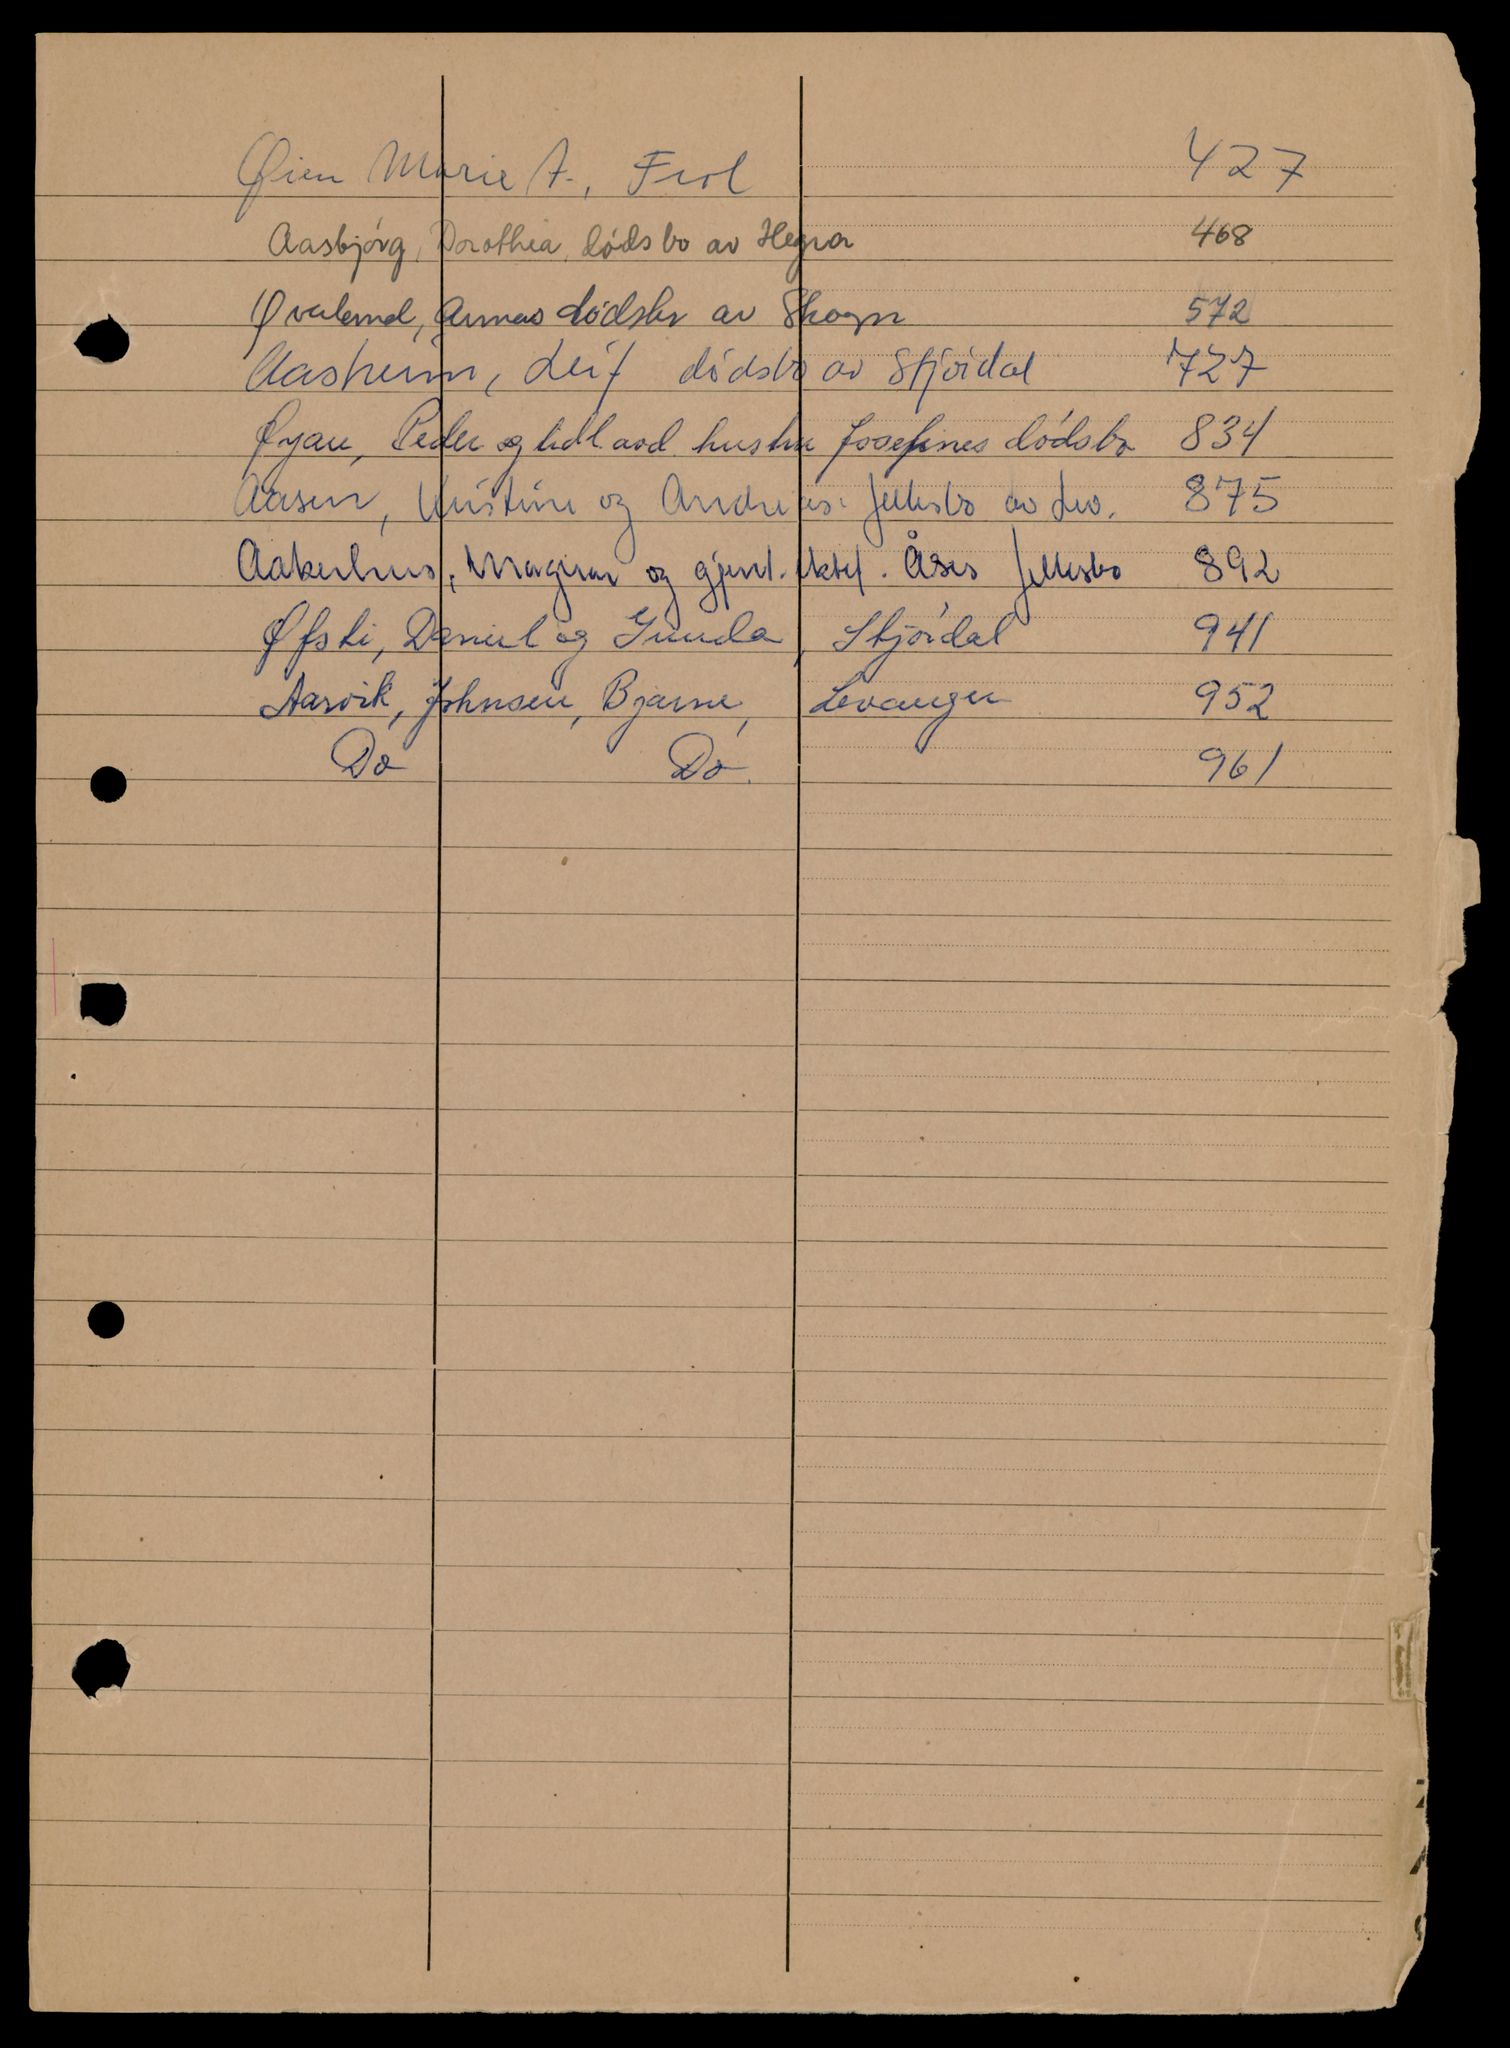 Øien Marie A., Frol 427
Aasbjørg, Dorothea, dødsbo av Hegra 468
Annas dødsbo av Skogn 572
Aasheim, Leif dødsbo av Stjørdal 727
Øyan, Peder og tidl. avd. hustru Josefines dødsbo 834
Aasen, Kristine og Andreas: fellesbo av Lev. 875
Aakerhus, Magnar og gjenl. ektef. Åses fellesbo 892
Øfsti, Daniel og Gunda, Stjørdal 941
Aarvik, Johnsen, Bjarne, Levanger 952
Do Do. 961